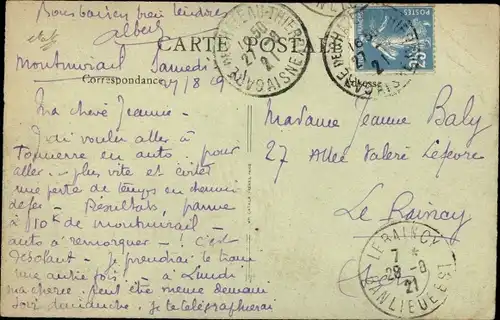 Bons baisers bien tendres
Albert
CARTE POSTALE
Correspondance
Adresse
GARE DE CHATEAU-THIERRY AISNE
18 30
27 - 8
21
GARE DE CHATEAU-THIERRY AISNE
18 30
27
21
25
Montmirail Samedi
27/8
Ma chère Jeanne -
J'ai voulu aller à
Tonnerre en auto pour
aller - plus vite et éviter
une perte de temps en chemin
de fer - Résultats, panne
à 10 k de Montmirail -
auto à remorquer - ! C'est
désolant - Je prendrai le train
une autre fois ! - à Lundi
ma chérie peut être même demain
soir dimanche. je te télégraphierai
Madame Jeanne Baly
27 Allée Valère Lefevre
Le Raincy
LE RAINCY
7 *
28 - 8
21
BANLIEUE EST